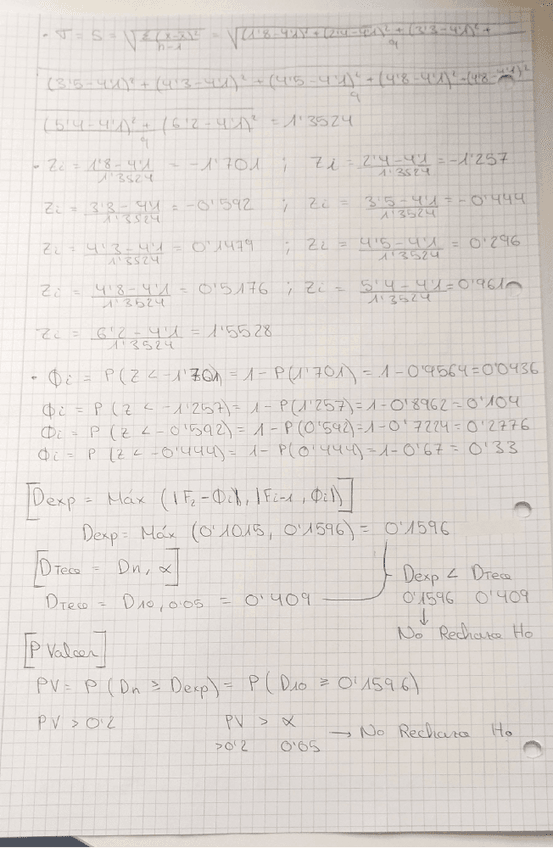 · σ = S = √Σ(x-x̄)²/n-1 = √(1'8-4'1)² + (2'4-4'1)² + (3'3-4'1)² + / 9
(3'5-4'1)² + (4'3-4'1)² + (4'5-4'1)² + (4'8-4'1)² + (4'8-4'1)² / 9
(5'4-4'1)² + (6'2-4'1)² / 9 = 1'3524
· Zi = 1'8-4'1/1'3524 = -1'701 ; Zi = 2'4-4'1/1'3524 = -1'257
Zi = 3'3-4'1/1'3524 = -0'592 ; Zi = 3'5-4'1/1'3524 = -0'444
Zi = 4'3-4'1/1'3524 = 0'1479 ; Zi = 4'5-4'1/1'3524 = 0'296
Zi = 4'8-4'1/1'3524 = 0'5176 ; Zi = 5'4-4'1/1'3524 = 0'961
Zi = 6'2-4'1/1'3524 = 1'5528
· Φi = P(Z < -1'701) = 1-P(1'701) = 1-0'9564 = 0'0436
Φi = P(Z < -1'257) = 1-P(1'257) = 1-0'8962 = 0'104
Φi = P(Z < -0'592) = 1-P(0'592) = 1-0'7224 = 0'2776
Φi = P(Z < -0'444) = 1-P(0'444) = 1-0'67 = 0'33
[Dexp = Máx (|Fi-Φi|, |Fi-1, Φi|)]
Dexp = Máx (0'1015, 0'1596) = 0'1596
[Dteco = Dn, α]
Dteco = D10, 0.05 = 0'409
Dexp < Dteco
0'1596 0'409
↓
No Rechazo Ho
[P Valor]
PV = P (Dn ≥ Dexp) = P (D10 ≥ 0'1596)
PV > 0'2 PV > α
>0'2 0'05 → No Rechazo Ho